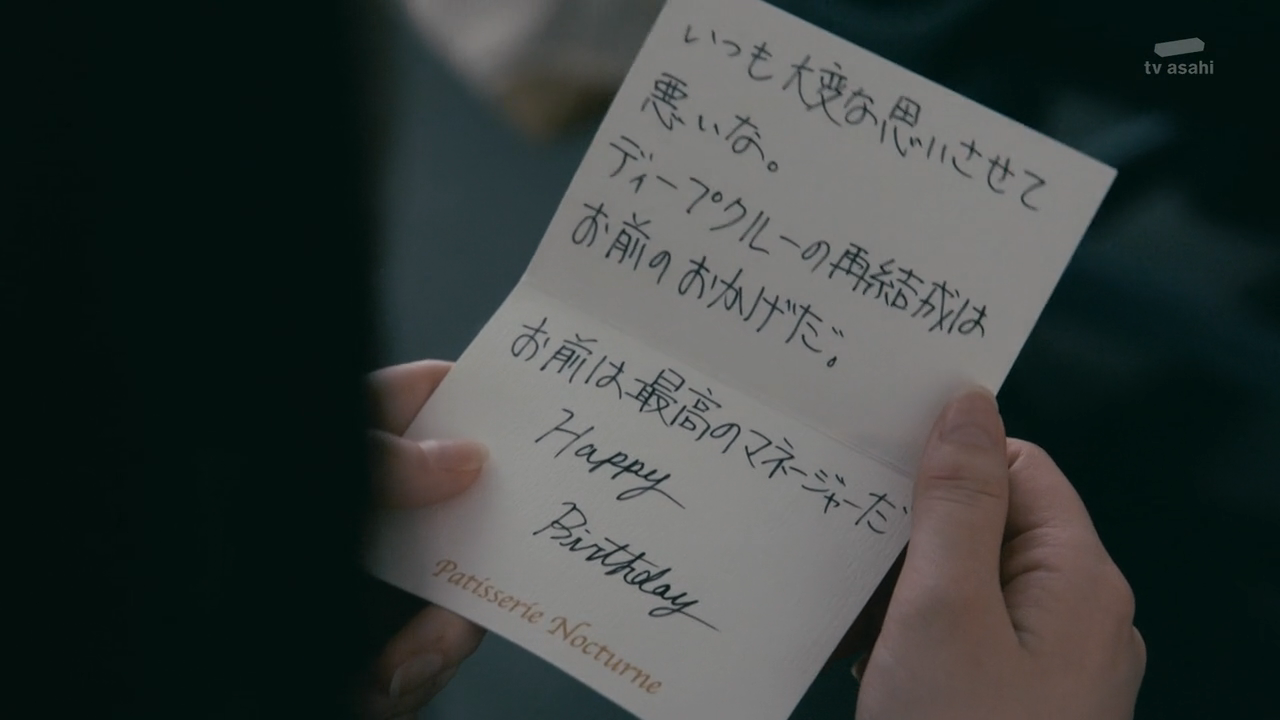 tv asahi
いつも大変な思いさせて
悪いな。
ディープクルーの再結成は
お前のおかげだ。
お前は最高のマネージャーだ
Happy
Birthday
Patisserie Nocturne